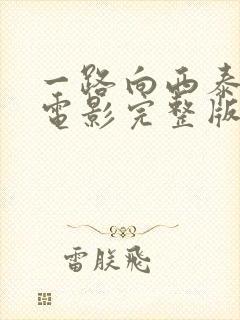 一路向西泰
电影完整版
雷朕飞